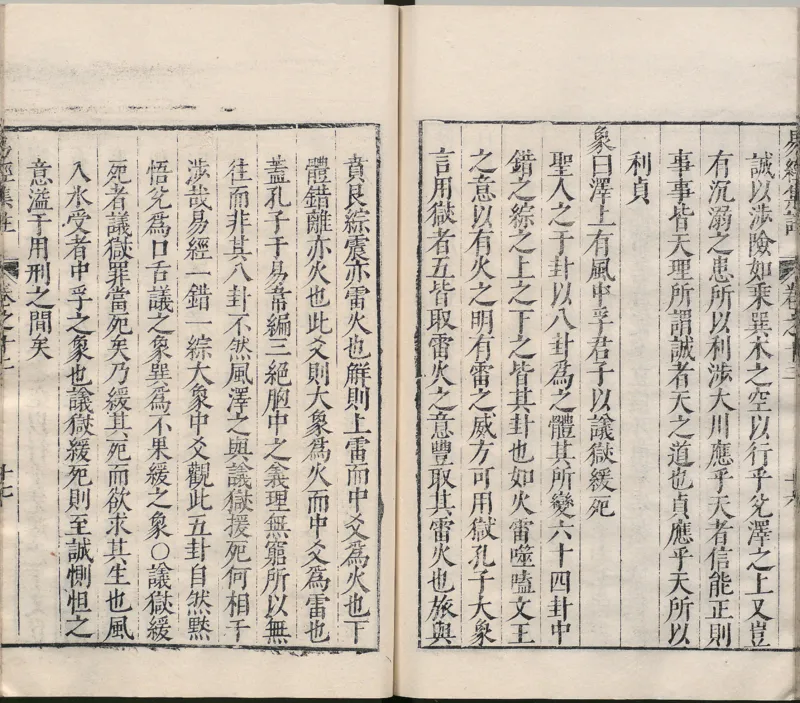 易經集註 卷之十二
誠以涉險如乘巽木之空以行乎兌澤之上又豈
有沉溺之患所以利涉大川應乎天者信能正則
事事皆天理所謂誠者天之道也貞應乎天所以
利貞
象曰澤上有風中孚君子以議獄緩死
聖人之于卦以八卦為之體其所變六十四卦中
錯之綜之上之下之皆其卦也如火雷噬嗑文王
之意以有火之明有雷之威方可用獄孔子大象
言用獄者五皆取雷火之意豐取其雷火也旅與
賁艮綜震亦雷火也解則上雷而中爻為火也下
體錯離亦火也此爻則大象為火而中爻為雷也
蓋孔子于易韋編三絕胸中之義理無窮所以無
往而非其八卦不然風澤之與議獄援死何相干
涉哉易經一錯一綜大象中爻觀此五卦自然黙
悟兌為口舌議之象巽為不果緩之象○議獄緩
死者議獄罪當死矣乃緩其死而欲求其生也風
入水受者中孚之象也議獄緩死則至誠惻怛之
意溢于用刑之間矣
易經集註 卷之十二 十七